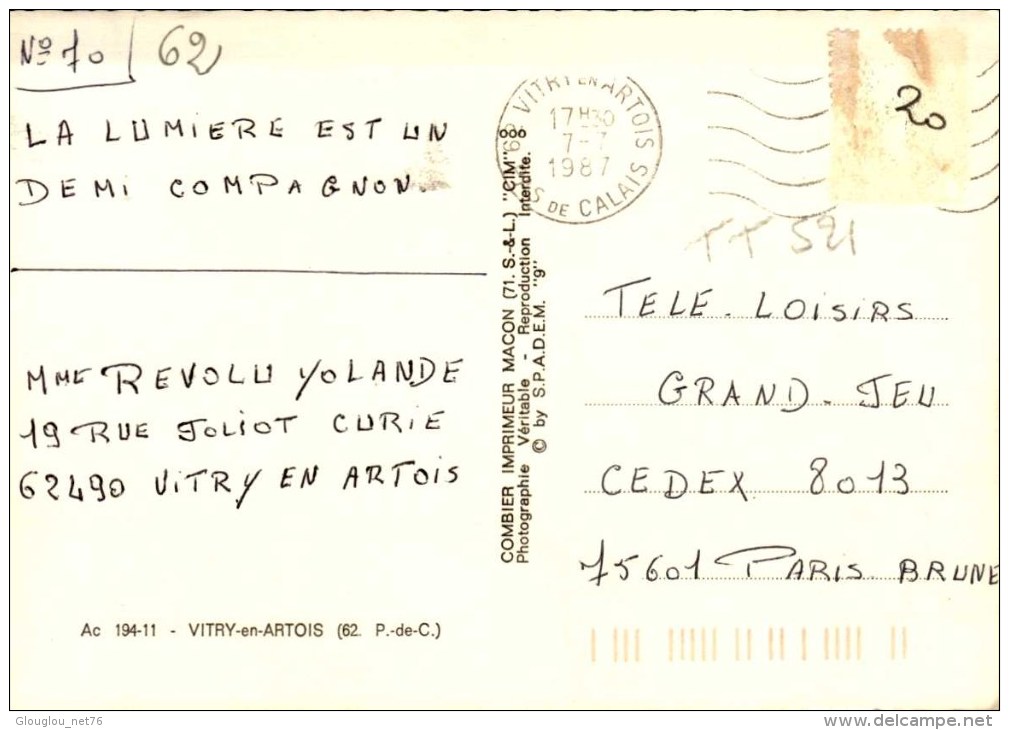 Nº 70 62
LA LUMIERE EST UN
DEMI COMPAGNON.
MME REVOLU YOLANDE
19 RUE JOLIOT CURIE
62490 VITRY EN ARTOIS
Ac 194-11 - VITRY-en-ARTOIS (62. P.-de-C.)
COMBIER IMPRIMEUR MACON (71. S.-&-L.) "CIM"
Photographie Véritable - Reproduction Interdite.
© by S.P.A.D.E.M. "9"
VITRY EN ARTOIS
17H30
7-7
1987
DE CALAIS
20
TT 521
TELE. LOISIRS
GRAND. JEU
CEDEX 8013
75601 PARIS. BRUNE
Glouglou_net76
delcampe.net